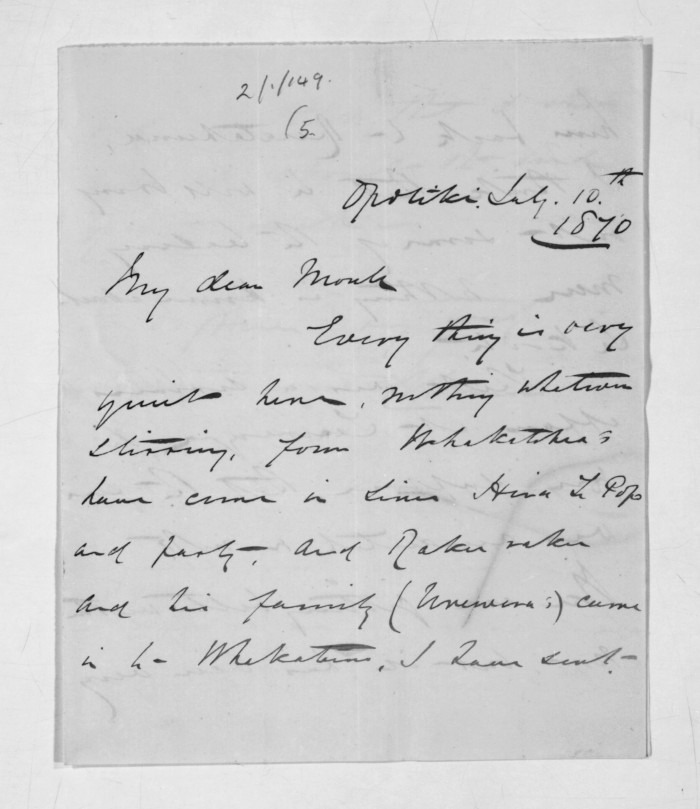 2/1/149.
(5.
Opotiki. July. 10.th
1870
My dear
Every thing is very
quiet here, nothing whatever
stirring, four Whakatohea's
have come in since Hira Te Popo
and party, and Rakuraku
and his family (Urewera's) came
in to Whakatane, I have sent